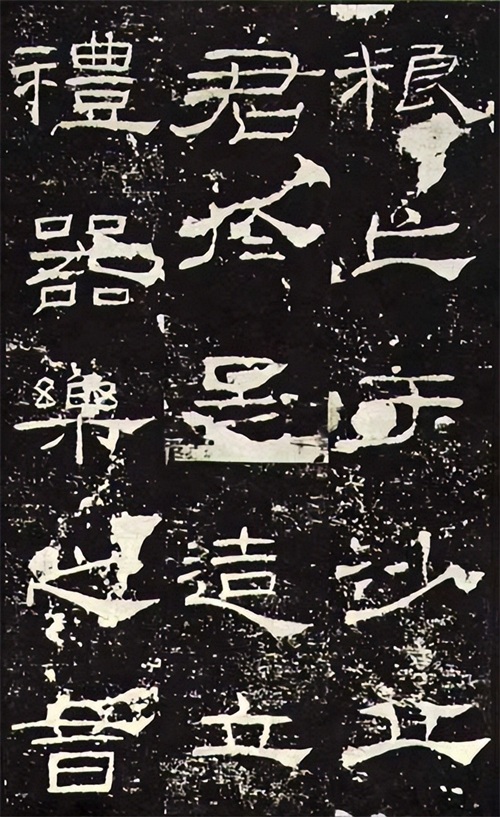 粮亡于沙丘
君於是造立
禮器樂之音